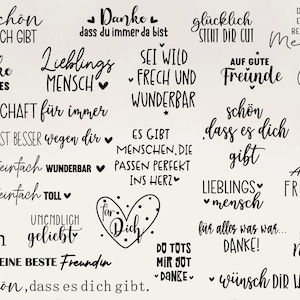 schön
ICH GIBT
Danke
dass du immer da bist
glücklich
STEHT DIR GUT
Lieblings
MENSCH
SEI WILD
FRECH UND
WUNDERBAR
AUF GUTE
Freunde
ES
SCHAFT für immer
schön
dass es dich
gibt
IST BESSER wegen dir
ES GIBT
MENSCHEN, DIE
PASSEN PERFEKT
INS HERZ
einfach WUNDERBAR
einfach TOLL
LIEBLINGS
mensch
FR
UNENDLICH
geliebt
für
Dich
für alles was war...
DANKE!
DU TUTS
MIR GUT
DANKE
EINE BESTE Freundin
wünsch DIR W
on, dass es dich gibt.